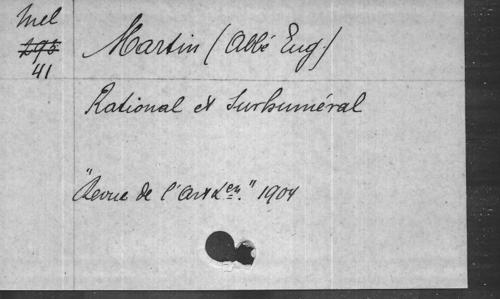 Mel
295
41
Martin (Abbé Eug)
Rational et Surhuméral
"Revue de l'Art xen." 1904